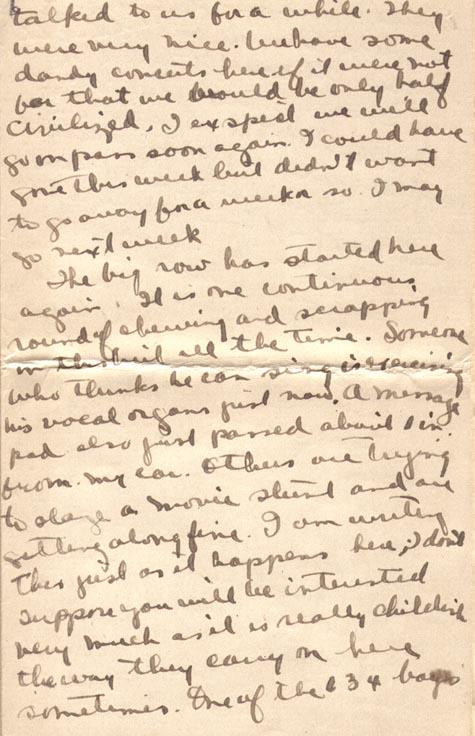 talked to us for a while. They
were very nice. We have some
dandy concerts here if it were not
for that we would be only half
civilized. I exspect we will
go on pass soon again. I could have
gone this week but didn't want
to go away for a week or so. I may
go next week
The big row has started here
again. It is one continuous
round of chewing and scrapping
in this all the time. Someone
who thinks he can sing is exercising
his vocal organs just now. A message
pad also just passed about 1 in.
from my ear. Others are trying
to stage a movie stunt and are
getting along fine. I am writing
this just as it happens here, I don't
suppose you will be interested
very much as it is really childish
the way they carry on here
sometimes. One of the 134 boys